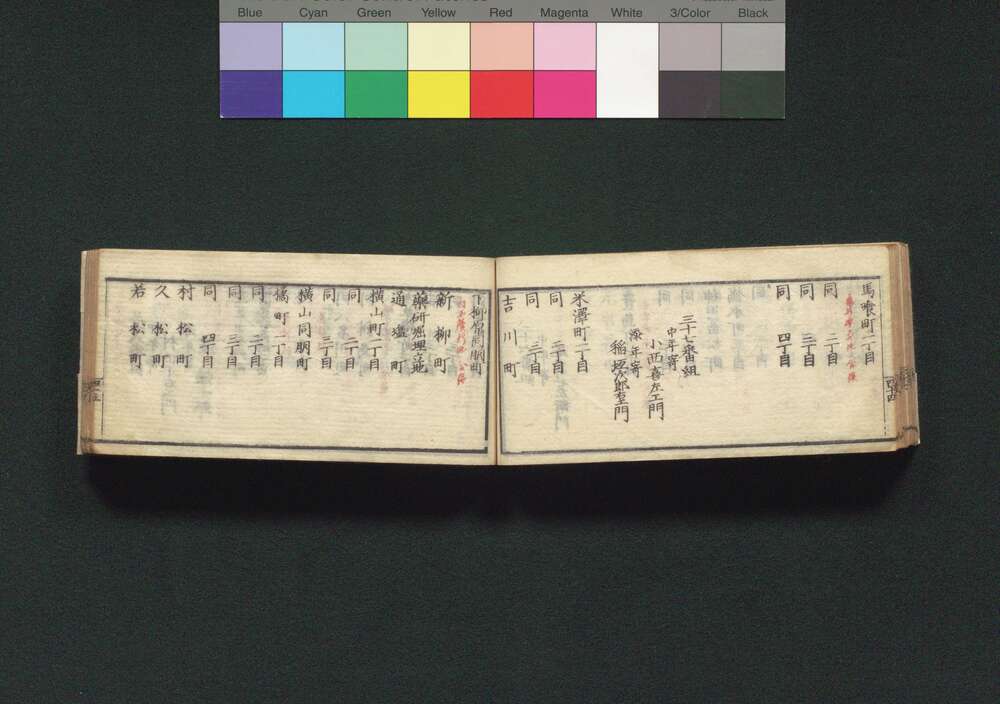 Blue Cyan Green Yellow Red Magenta White 3/Color Black
馬喰町一丁目
同 二丁目
同 三丁目
同 四丁目
三十七番組
中年寄
小西喜左エ門
添年寄
稲垣次郎左エ門
米澤町一丁目
同 二丁目
同 三丁目
吉川町
下柳原同朋町
新柳町
薬研堀埋立地
通塩町
横山町一丁目
同 二丁目
同 三丁目
横山同朋町
橘町一丁目
同 二丁目
同 三丁目
同 四丁目
村松町
久松町
若松町
四十四
四十五